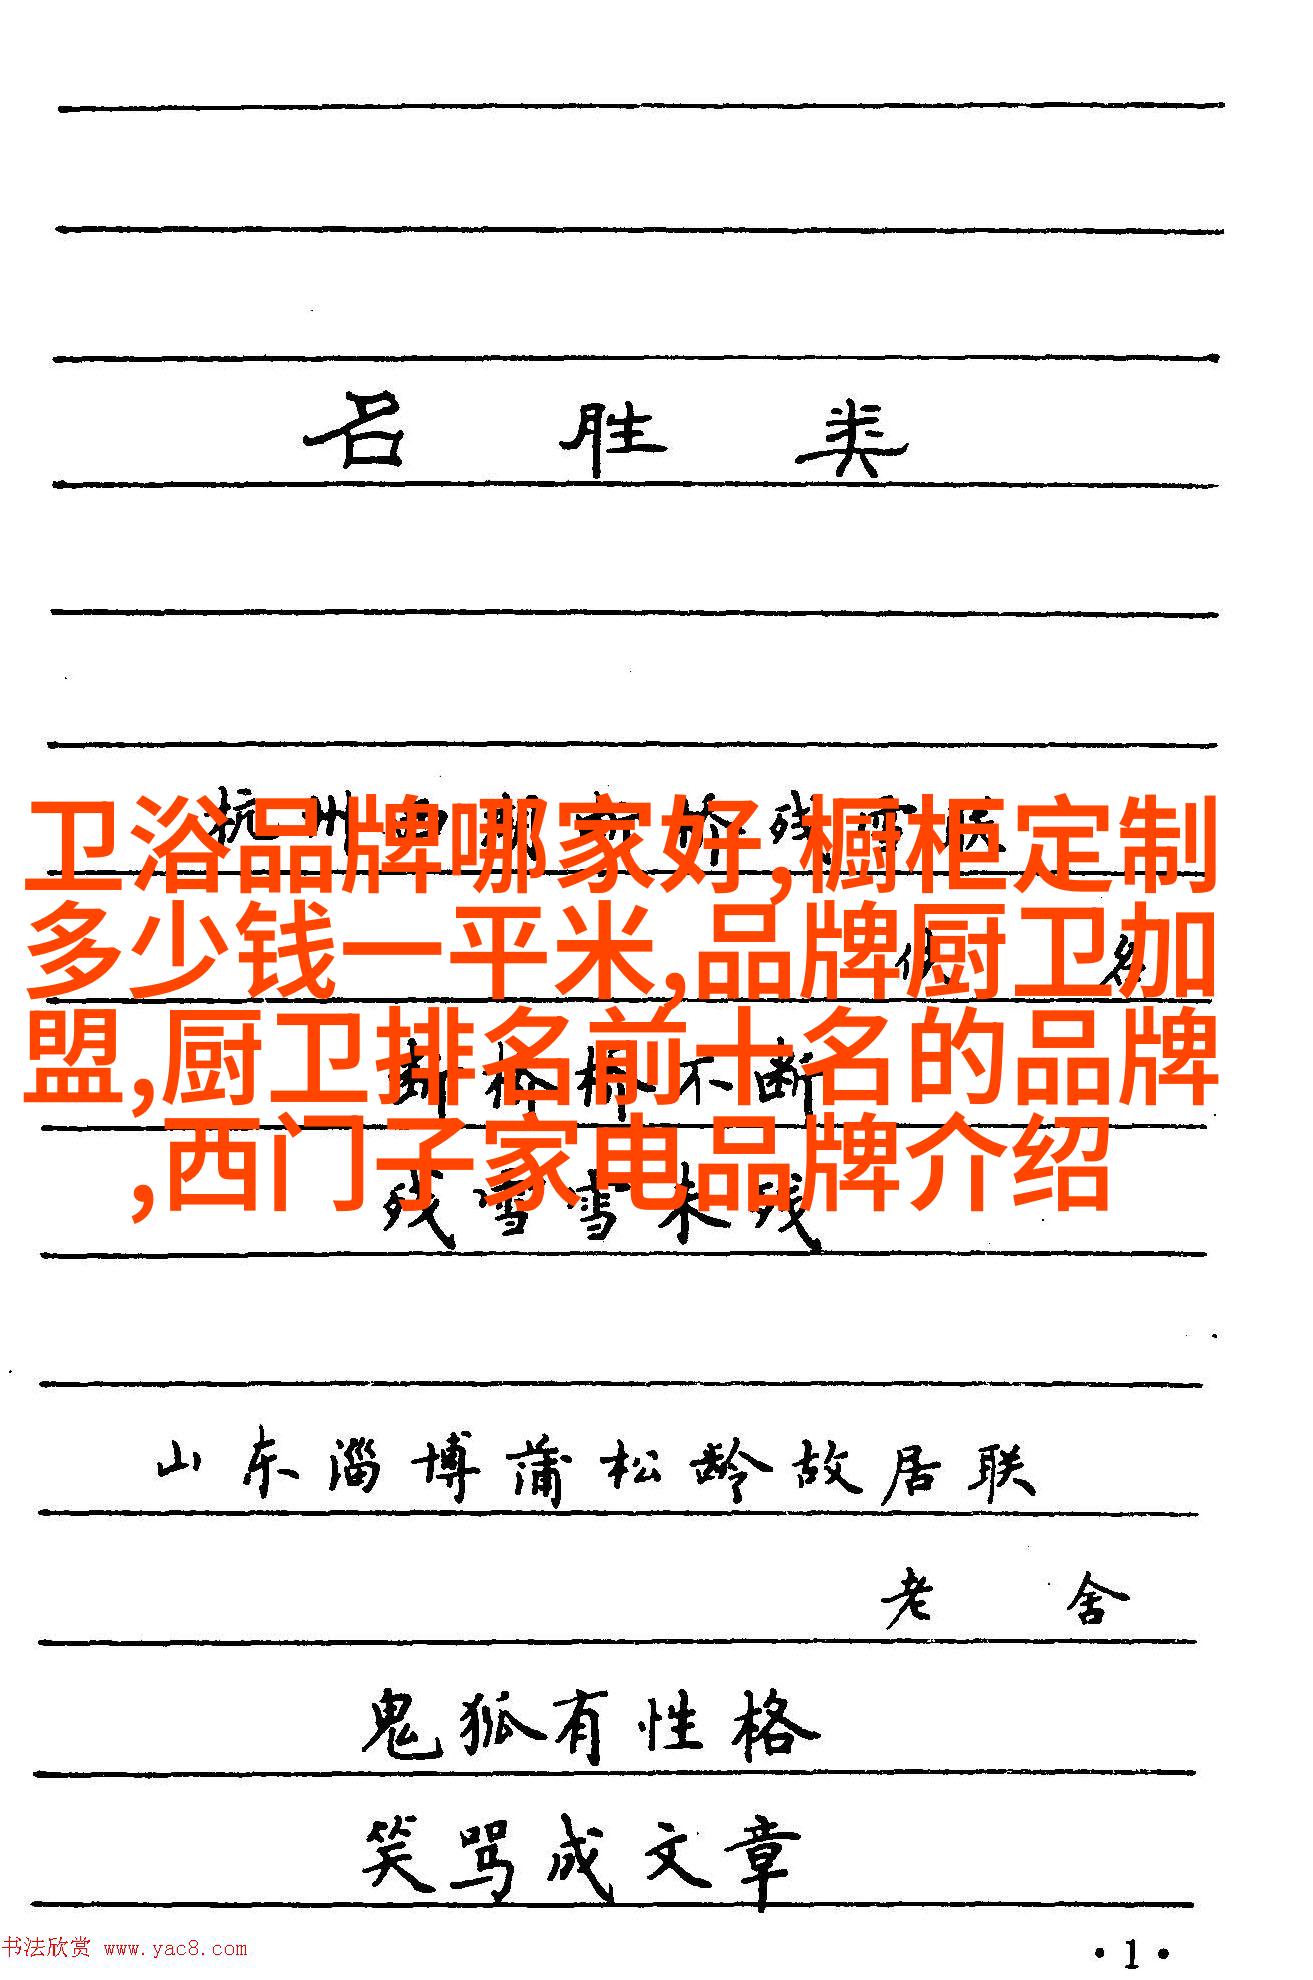 名胜类
杭州西湖断桥残雪联
卫浴品牌哪家好,橱柜定制
多少钱一平米,品牌厨卫加
盟,厨卫排名前十名的品牌
,西门子家电品牌介绍
断桥桥不断
残雪雪未残
山东淄博蒲松龄故居联
老舍
鬼狐有性格
笑骂成文章
书法欣赏 www.yac8.com
·1·